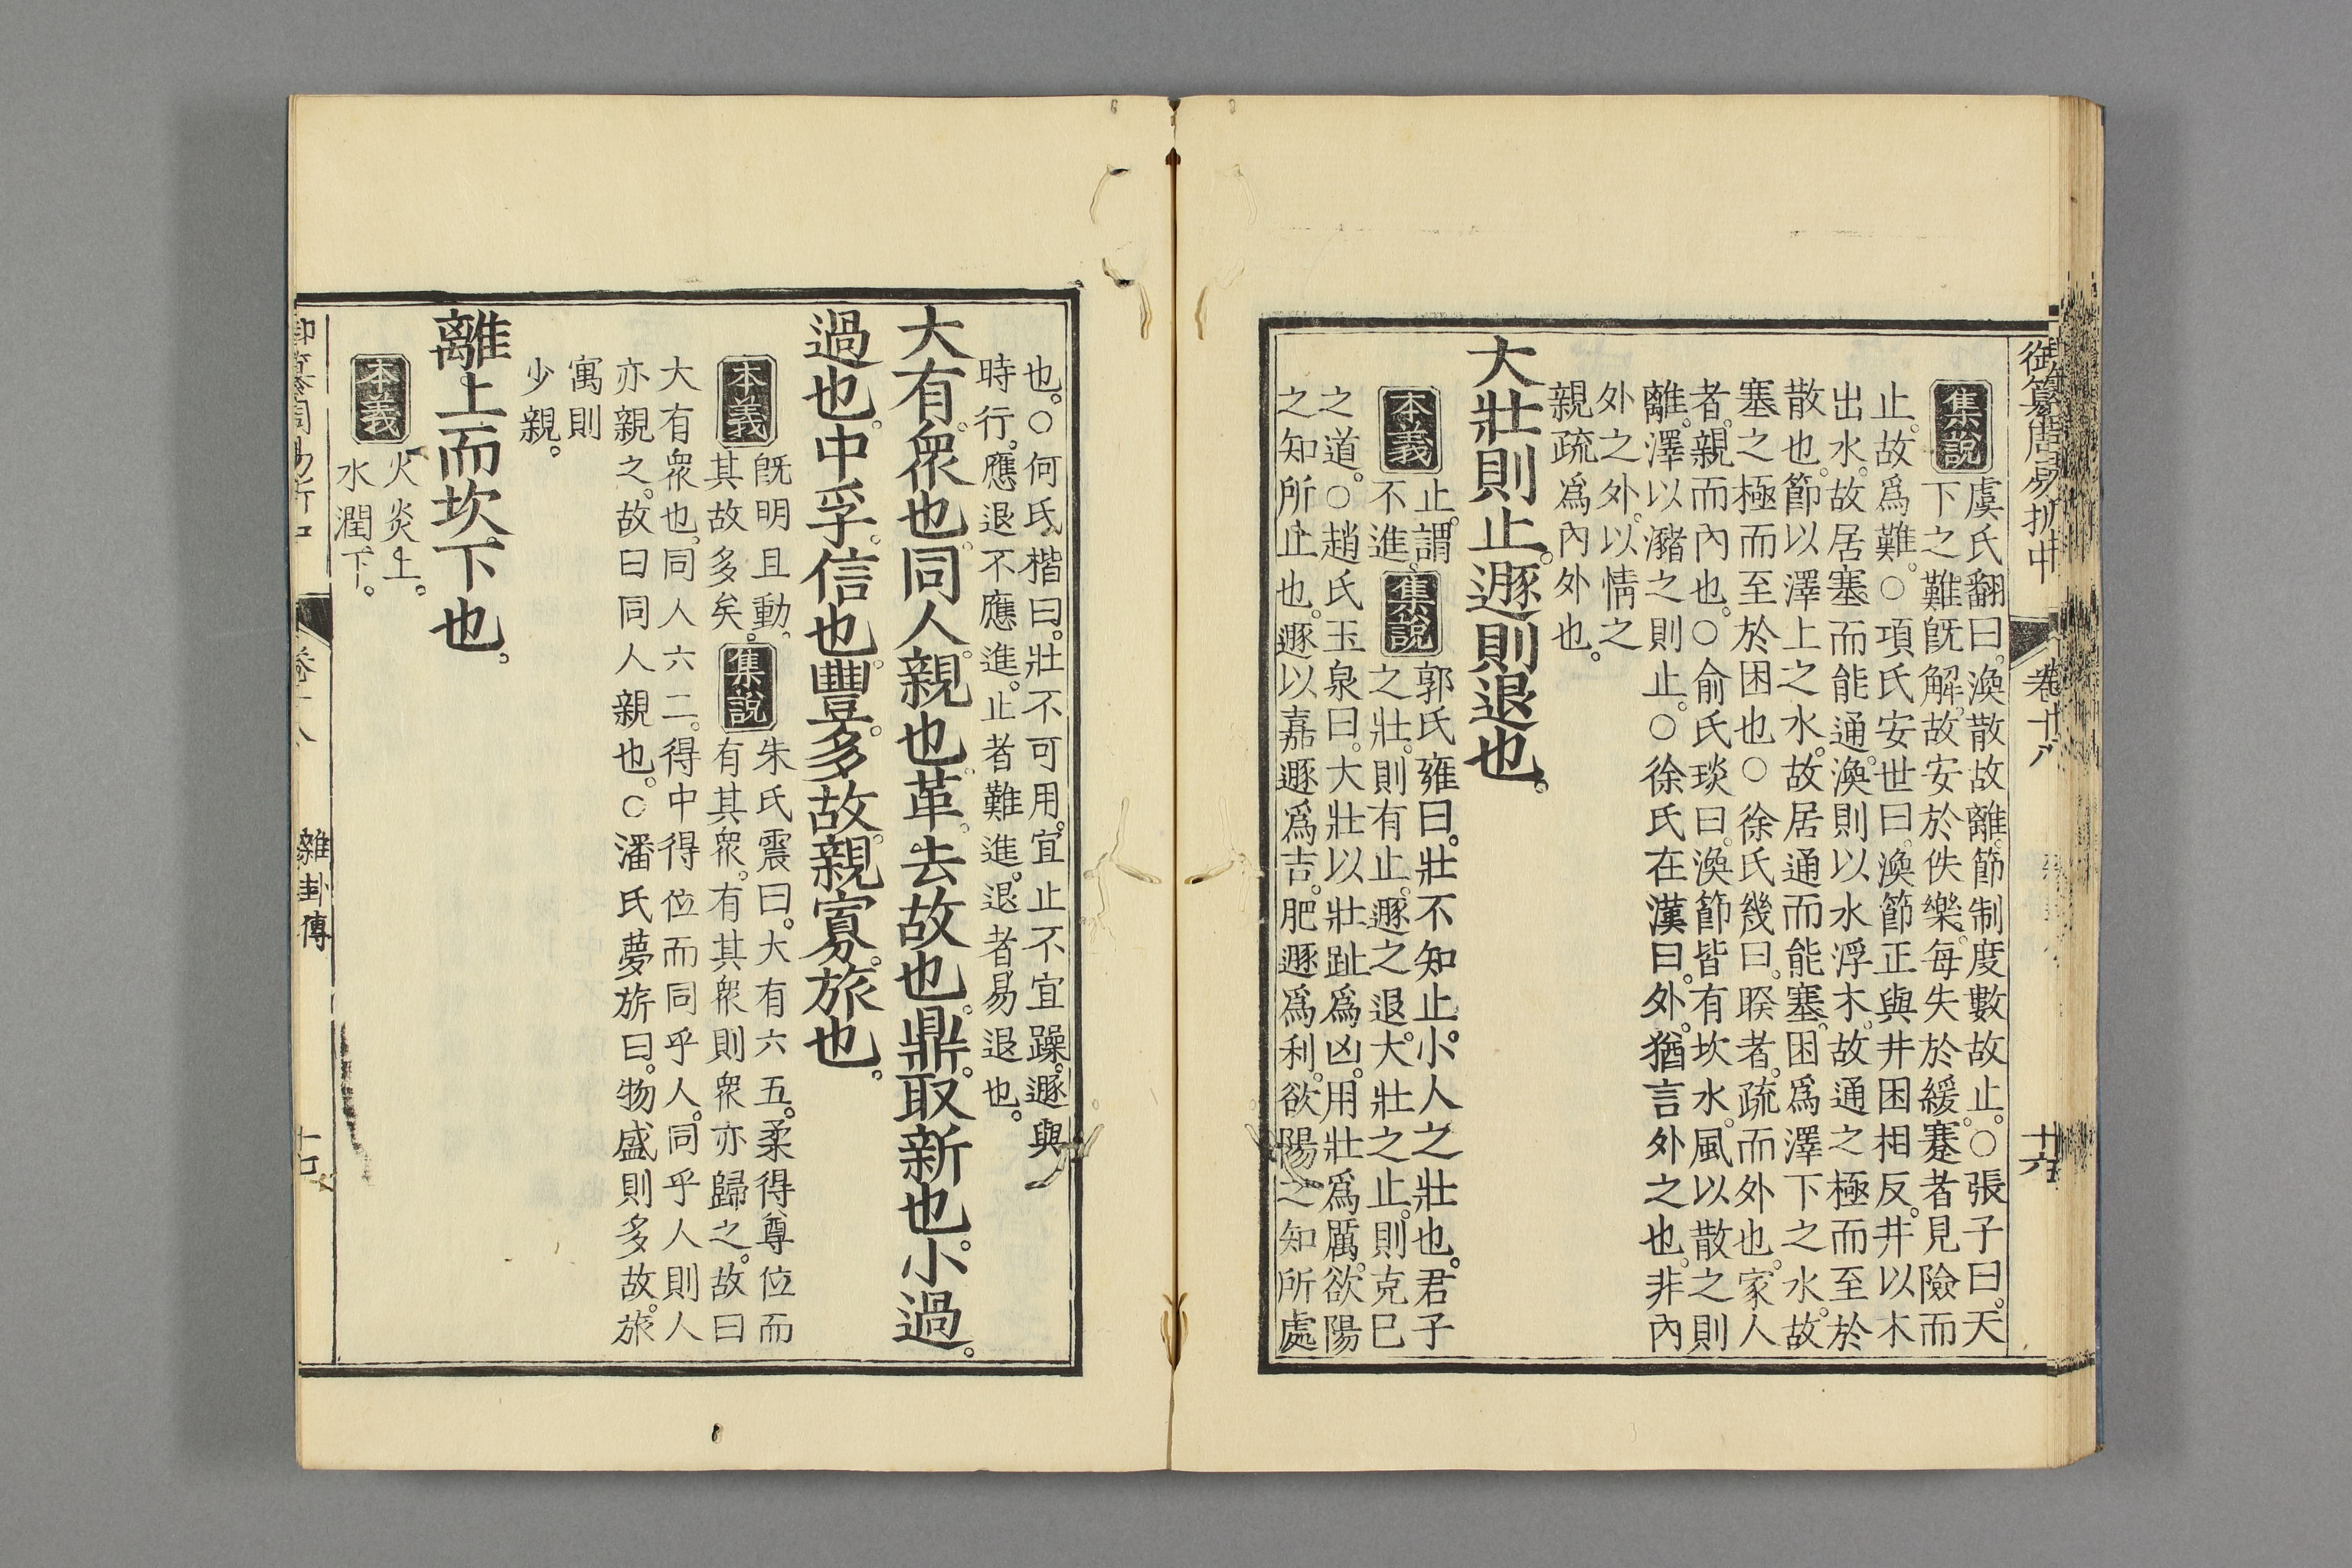 御纂周易折中 卷十八 十六
集說 虞氏翻曰。渙散故離。節制度數故止。○張子曰。天
下之難既解。故安於佚樂。每失於緩。蹇者見險而
止。故爲難。○項氏安世曰。渙節正與井困相反。井以木
出水。故居塞而能通。渙則以水浮木。故通之極而至於
散也。節以澤上之水。故居通而能塞。困爲澤下之水。故
塞之極而至於困也○徐氏幾曰。睽者。疏而外也。家人
者。親而內也。○俞氏琰曰。渙節皆有坎水。風以散之則
離。澤以瀦之則止。○徐氏在漢曰。外。猶言外之也。非內
外之外。以情之
親疏爲內外也。
大壯則止。遯則退也。
本義 止。謂
不進。
集說 郭氏雍曰。壯不知止。小人之壯也。君子
之壯。則有止。遯之退。大壯之止。則克已
之道。○趙氏玉泉曰。大壯以壯趾爲凶。用壯爲厲。欲陽
之知所止也。遯以嘉遯爲吉。肥遯爲利。欲陽之知所處
也。○何氏楷曰。壯不可用。宜止不宜躁。遯與
時行。應退不應進。止者難進。退者易退也。
大有。衆也。同人。親也。革。去故也。鼎。取新也。小過。
過也。中孚。信也。豐。多故。親寡。旅也。
本義 既明且動。
其故多矣。
集說 朱氏震曰。大有六五。柔得尊位而
有其衆。有其衆則衆亦歸之。故曰
大有衆也。同人六二。得中得位而同乎人。同乎人則人
亦親之。故曰同人親也。○潘氏夢旂曰。物盛則多故。旅
寓則
少親。
離。上而坎。下也。
本義 火炎上。
水潤下。
雜卦傳